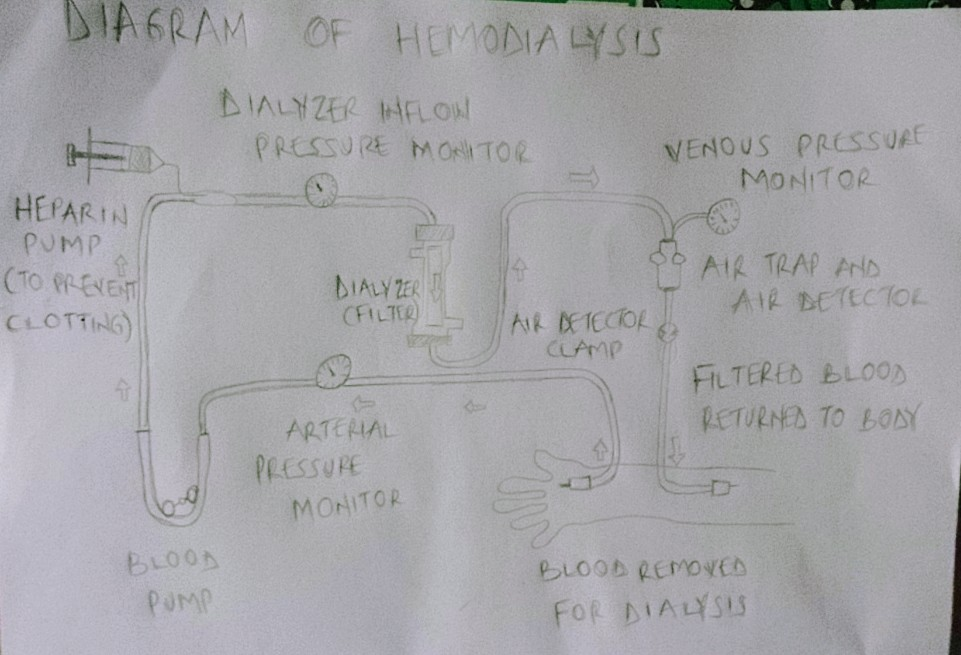 DIAGRAM OF HEMODIALYSIS
DIALYZER INFLOW
PRESSURE MONITOR
VENOUS PRESSURE
MONITOR
HEPARIN
PUMP
(TO PREVENT
CLOTTING)
DIALYZER
(FILTER)
AIR TRAP AND
AIR DETECTOR
AIR DETECTOR
CLAMP
FILTERED BLOOD
RETURNED TO BODY
ARTERIAL
PRESSURE
MONITOR
BLOOD
PUMP
BLOOD REMOVED
FOR DIALYSIS